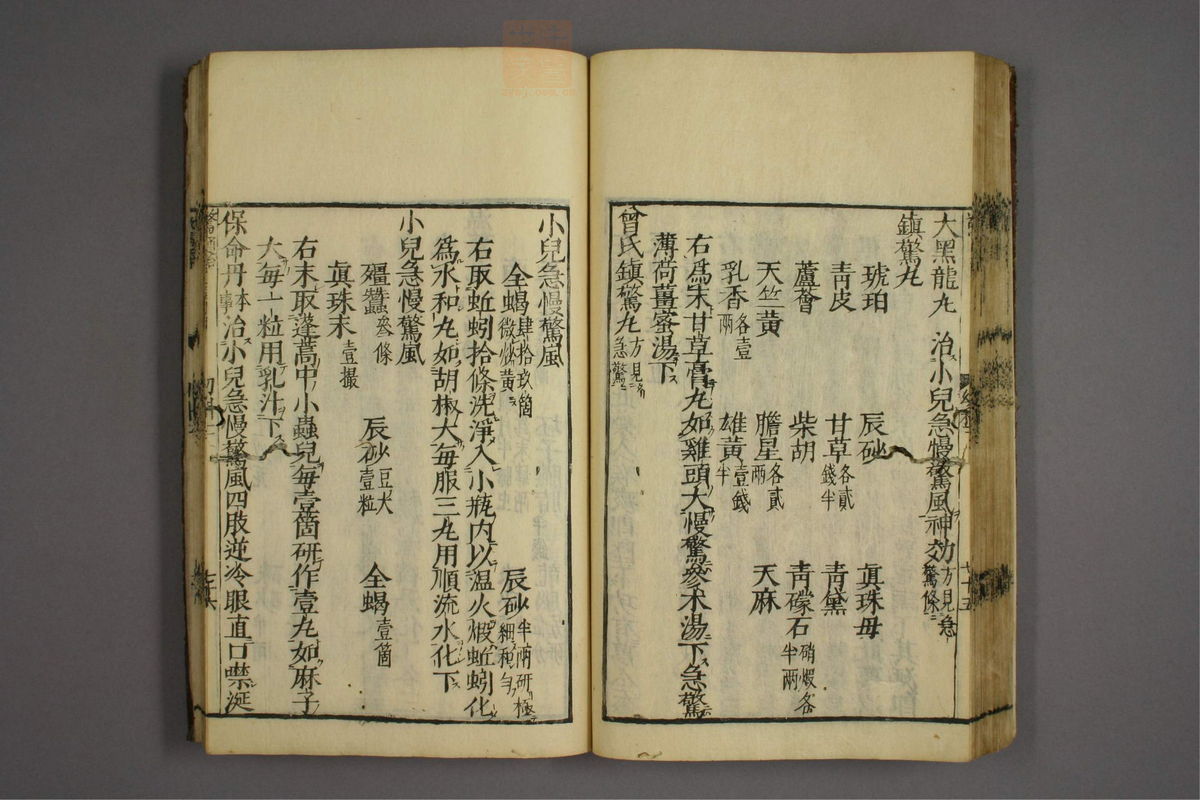 大黑龍丸　治小兒急慢驚風神効方見急驚條
鎮驚丸
琥珀　辰砂　眞珠母
靑皮　甘草各貳錢半　靑黛
蘆薈　柴胡　靑礞石硝煅各半兩
天竺黃　膽星各貳兩　天麻
乳香各壹兩　雄黃壹錢半
右爲末甘草膏丸如雞頭大慢驚參朮湯下急驚
薄荷薑蜜湯下
曾氏鎮驚丸方見急驚
小兒急慢驚風
全蝎肆拾玖箇微炒黃　辰砂半兩研極細和勻
右取蚯蚓拾條洗淨入小瓶內以温火煅蚯蚓化
爲水和丸如胡椒大每服三丸用順流水化下
小兒急慢驚風
殭蠶叄條　辰砂豆大壹粒　全蝎壹箇
眞珠末壹撮
右末取蓬蒿中小蟲兒每壹箇研作壹丸如麻子
大每一粒用乳汁下
保命丹　治小兒急慢驚風四肢逆冷眼直口噤涎